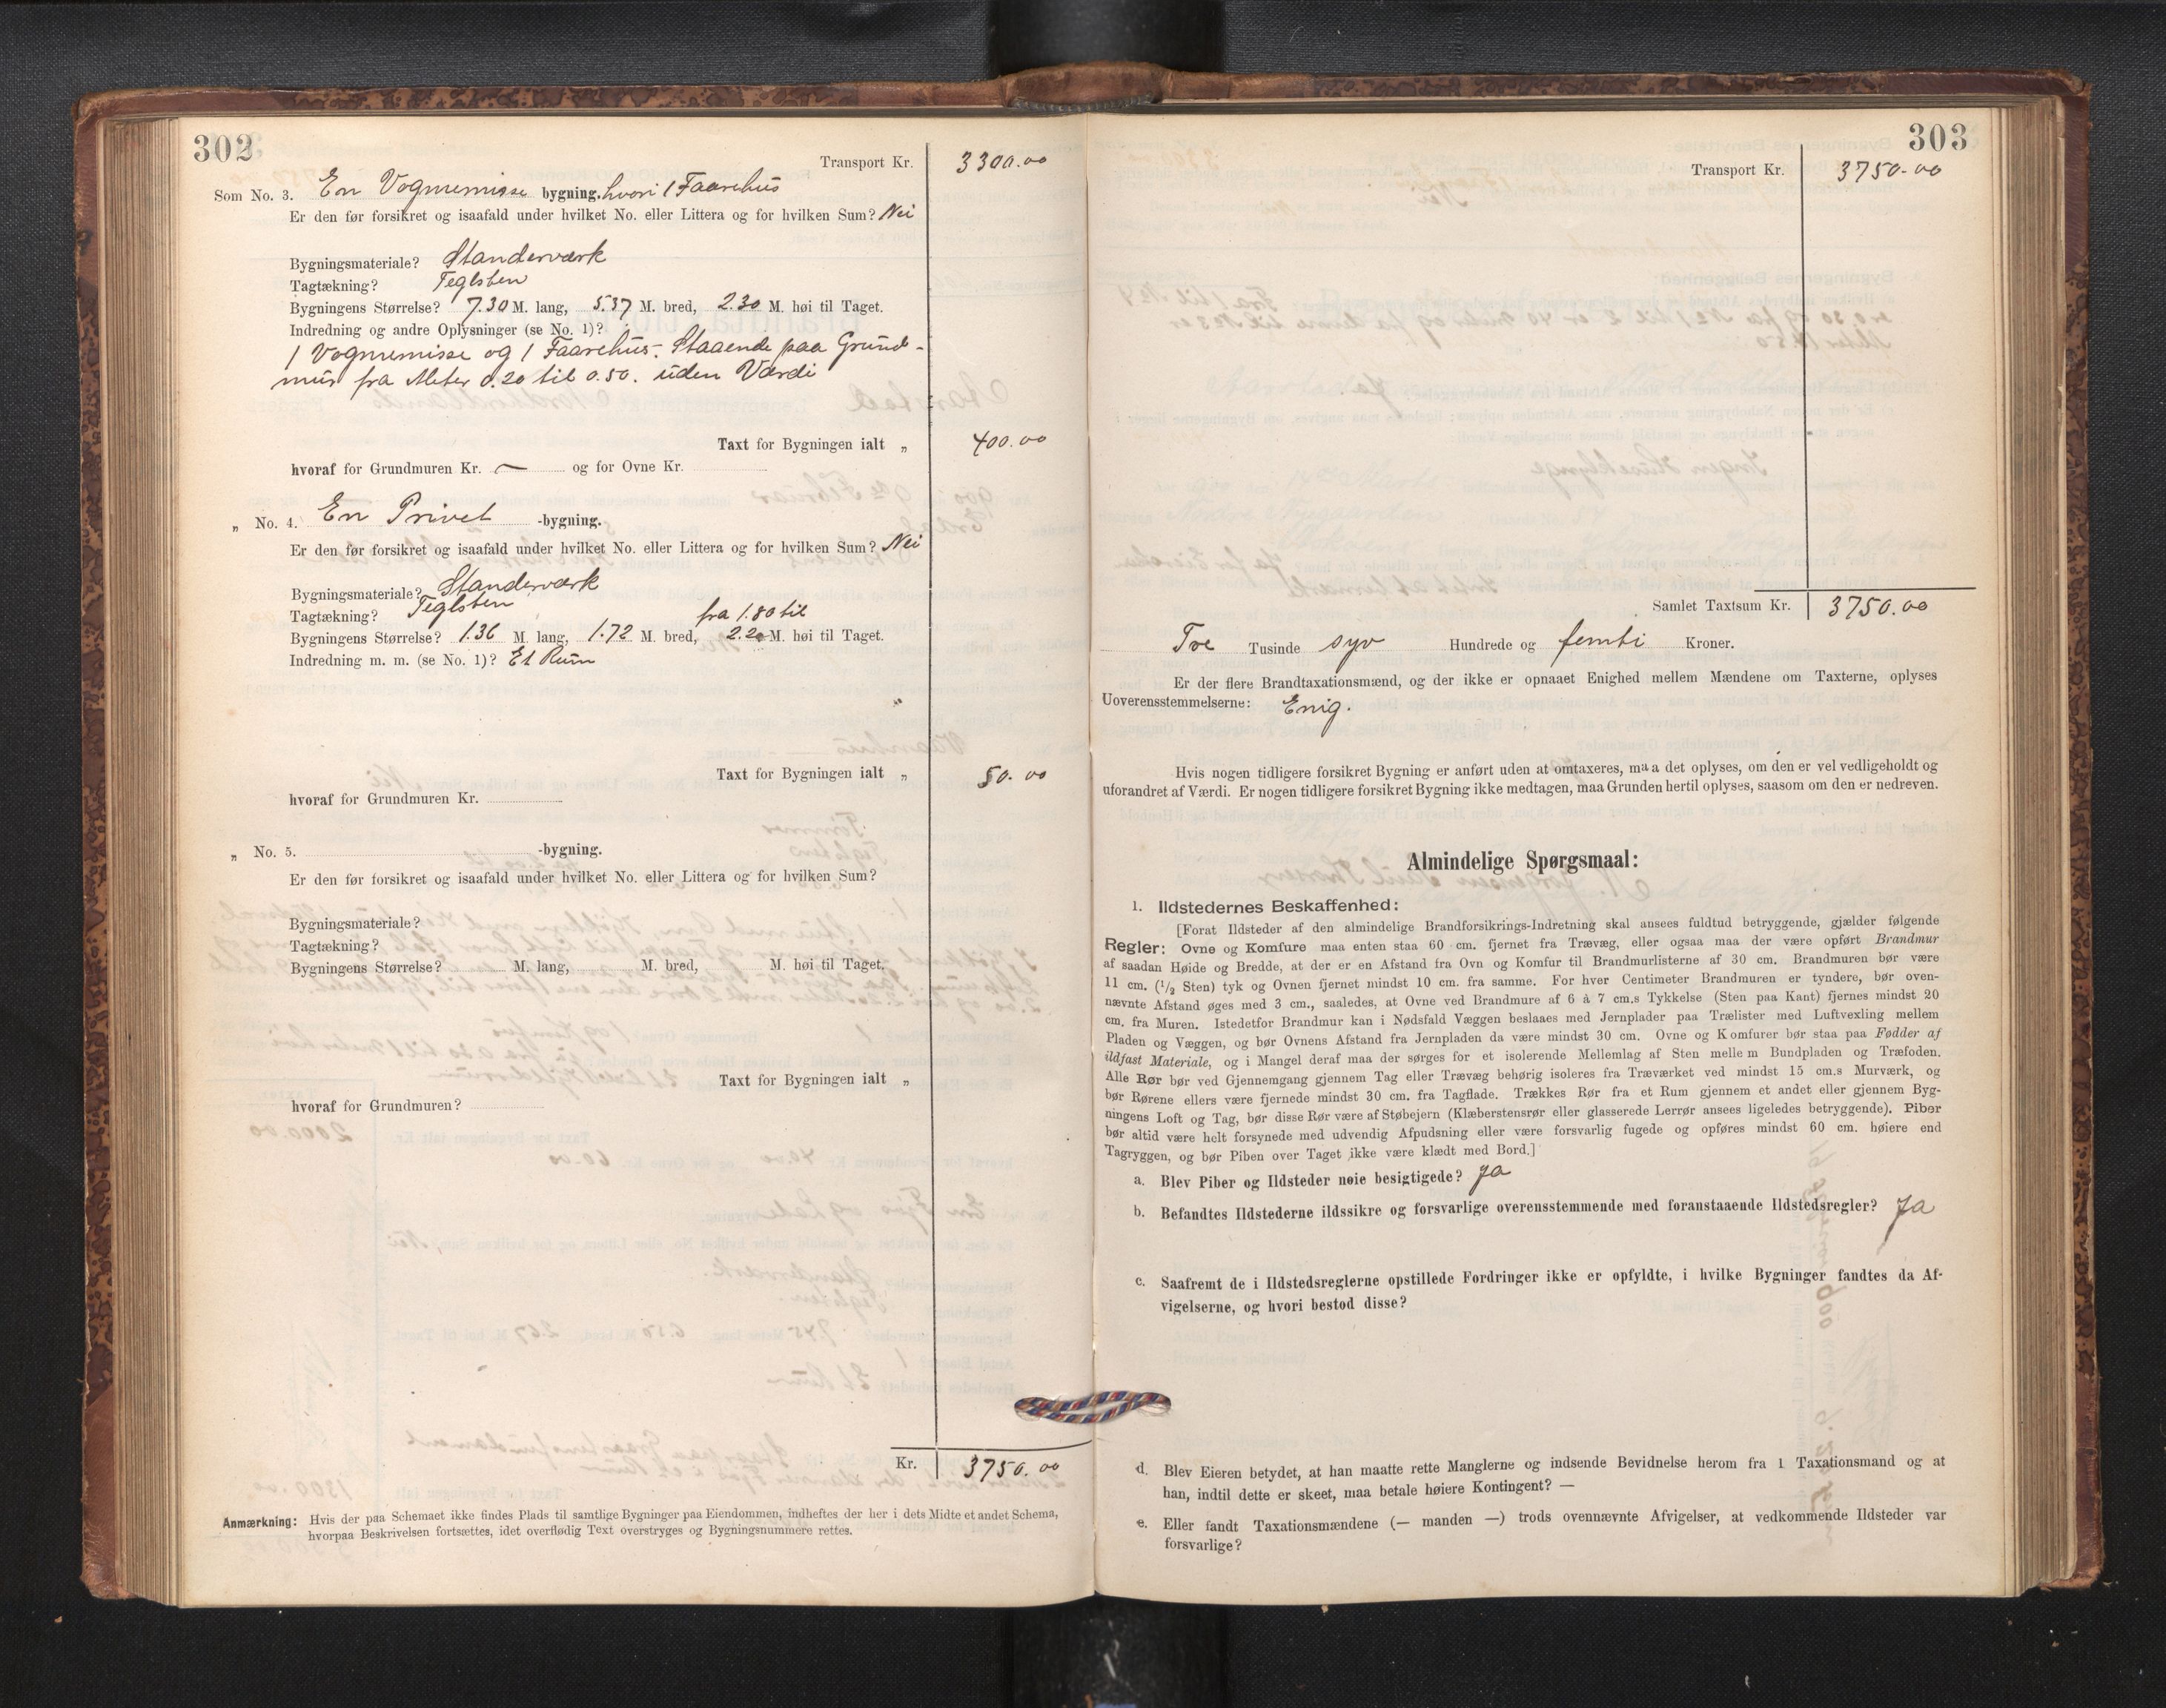 302
Transport Kr. 3300.00
Som No. 3. En Vognremisse bygning. hvori 1 Faarehus
Er den før forsikret og isaafald under hvilket No. eller Littera og for hvilken Sum? Nei
Bygningsmateriale? Standerværk
Tagtækning? Teglsten
Bygningens Størrelse? 7.30 M. lang, 5.37 M. bred, 2.30 M. høi til Taget.
Indredning og andre Oplysninger (se No. 1)?
1 Vognremisse og 1 Faarehus. Staaende paa Grund-
mur fra Meter 0.20 til 0.50. uden Værdi
Taxt for Bygningen ialt „ 400.00
hvoraf for Grundmuren Kr. — og for Ovne Kr.
„ No. 4. En Privet -bygning.
Er den før forsikret og isaafald under hvilket No. eller Littera og for hvilken Sum? Nei
Bygningsmateriale? Standerværk
Tagtækning? Teglsten
fra 1.80 til
Bygningens Størrelse? 1.36 M. lang, 1.72 M. bred, 2.20 M. høi til Taget.
Indredning m. m. (se No. 1)? Et Rum
„
Taxt for Bygningen ialt „ 50.00
hvoraf for Grundmuren Kr.
„ No. 5. -bygning.
Er den før forsikret og isaafald under hvilket No. eller Littera og for hvilken Sum?
Bygningsmateriale?
Tagtækning?
Bygningens Størrelse? M. lang, M. bred, M. høi til Taget.
Taxt for Bygningen ialt „
hvoraf for Grundmuren?
Kr. 3750.00
Anmærkning: Hvis der paa Schemaet ikke findes Plads til samtlige Bygninger paa Eiendommen, indheftes der her i dets Midte et andet Schema,
hvorpaa Beskrivelsen fortsættes, idet overflødig Text overstryges og Bygningsnummere rettes.
303
Transport Kr. 3750.00
Samlet Taxtsum Kr. 3750.00
Tre Tusinde syv Hundrede og femti Kroner.
Er der flere Brandtaxationsmænd, og der ikke er opnaaet Enighed mellem Mændene om Taxterne, oplyses
Uoverensstemmelserne: Enig.
Hvis nogen tidligere forsikret Bygning er anført uden at omtaxeres, maa det oplyses, om den er vel vedligeholdt og
uforandret af Værdi. Er nogen tidligere forsikret Bygning ikke medtagen, maa Grunden hertil oplyses, saasom om den er nedreven.
Almindelige Spørgsmaal:
1. Ildstedernes Beskaffenhed:
[Forat Ildsteder af den almindelige Brandforsikrings-Indretning skal ansees fuldtud betryggende, gjælder følgende
Regler: Ovne og Komfure maa enten staa 60 cm. fjernet fra Trævæg, eller ogsaa maa der være opført Brandmur
af saadan Høide og Bredde, at der er en Afstand fra Ovn og Komfur til Brandmurlisterne af 30 cm. Brandmuren bør være
11 cm. (1/2 Sten) tyk og Ovnen fjernet mindst 10 cm. fra samme. For hver Centimeter Brandmuren er tyndere, bør oven-
nævnte Afstand øges med 3 cm., saaledes, at Ovne ved Brandmure af 6 à 7 cm.s Tykkelse (Sten paa Kant) fjernes mindst 20
cm. fra Muren. Istedetfor Brandmur kan i Nødsfald Væggen beslaaes med Jernplader paa Trælister med Luftvexling mellem
Pladen og Væggen, og bør Ovnens Afstand fra Jernpladen da være mindst 30 cm. Ovne og Komfurer bør staa paa Fødder af
ildfast Materiale, og i Mangel deraf maa der sørges for et isolerende Mellemlag af Sten mellem Bundpladen og Træfoden.
Alle Rør bør ved Gjennemgang gjennem Tag eller Trævæg behørig isoleres fra Træværket ved mindst 15 cm.s Murværk, og
bør Rørene ellers være fjernede mindst 30 cm. fra Tagflade. Trækkes Rør fra et Rum gjennem et andet eller gjennem Byg-
ningens Loft og Tag, bør disse Rør være af Støbejern (Klæberstensrør eller glasserede Lerrør ansees ligeledes betryggende). Piber
bør altid være helt forsynede med udvendig Afpudsning eller være forsvarlig fugede og opføres mindst 60 cm. høiere end
Tagryggen, og bør Piben over Taget ikke være klædt med Bord.]
a. Blev Piber og Ildsteder nøie besigtigede? Ja
b. Befandtes Ildstederne ildssikre og forsvarlige overensstemmende med foranstaaende Ildstedsregler? Ja
c. Saafremt de i Ildstedsreglerne opstillede Fordringer ikke er opfyldte, i hvilke Bygninger fandtes da Af-
vigelserne, og hvori bestod disse?
d. Blev Eieren betydet, at han maatte rette Manglerne og indsende Bevidnelse herom fra 1 Taxationsmand og at
han, indtil dette er skeet, maa betale høiere Kontingent? —
e. Eller fandt Taxationsmændene (— manden —) trods ovennævnte Afvigelser, at vedkommende Ildsteder var
forsvarlige?